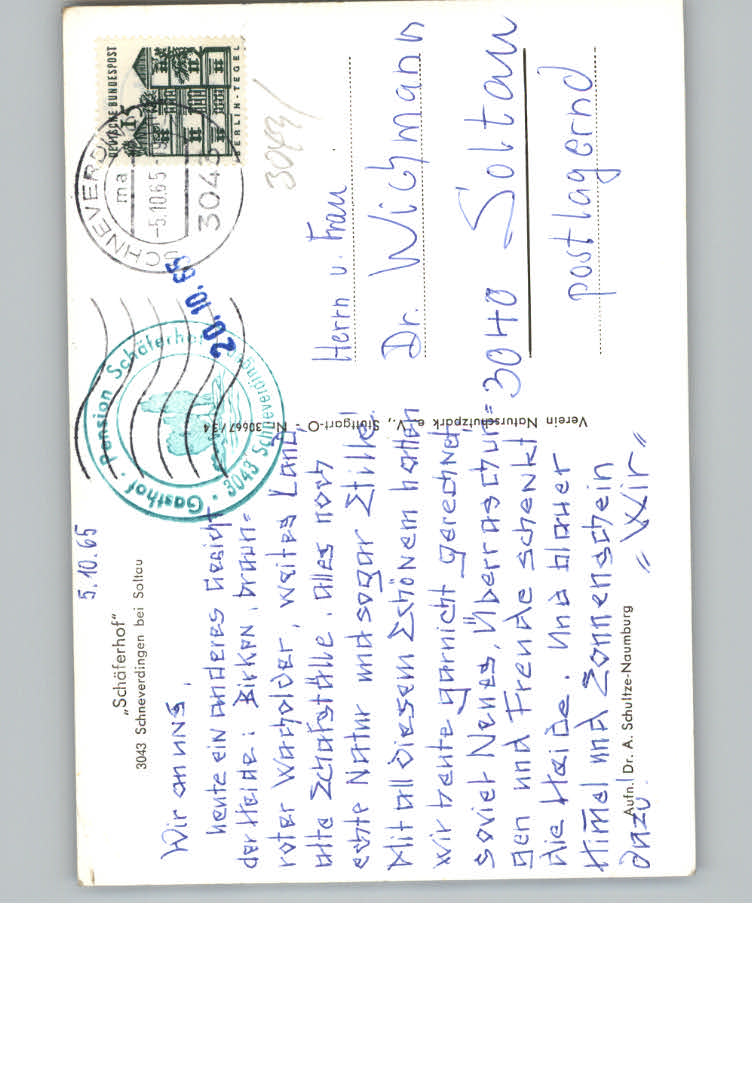 5.10.65
„Schäferhof"
3043 Schneverdingen bei Soltau
Wir an uns,
heute ein anderes Gesicht
der Heide: Birken, braun=
roter Wacholder, weites Land,
alte Schafställe, alles noch
echte Natur und sogar Stille!
Mit all diesem Schönem hatten
wir heute garnicht gerechnet
soviel Neues, Überraschun=
gen und Freude schenkt
die Heide. Und blauer
Himel und Sonnenschein
dazu.
„Wir"
Aufn. Dr. A. Schultze-Naumburg
Verein Naturschutzpark e. V., Stuttgart-O - Nr. 30667/34
Gasthof · Pension Schäferhof
3043 Schneverdingen
20.10.65
SCHNEVERDINGEN
ma
-5.10.65-
3043
DEUTSCHE BUNDESPOST
15
BERLIN-TEGEL
3043/
Herrn u. Frau
Dr. Wichmann
3040 Soltau
postlagernd